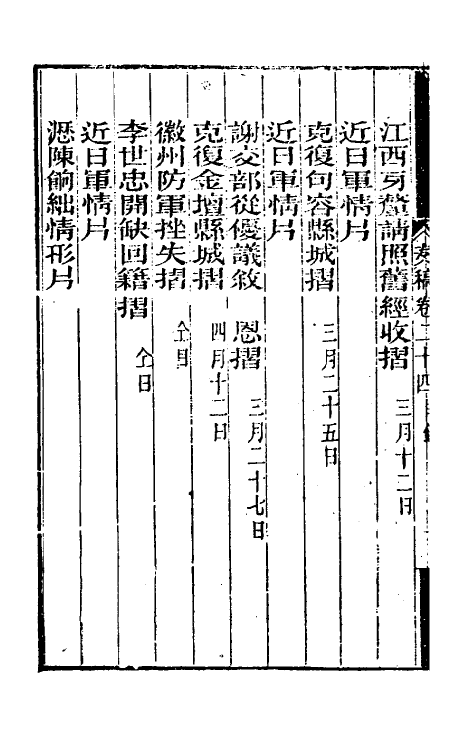 奏稿卷二十四目錄
江西牙釐請照舊經收摺 三月十二日
近日軍情片
克復句容縣城摺 三月二十五日
近日軍情片
謝交部從優議敘 恩摺 三月二十七日
克復金壇縣城摺 四月十二日
徽州防軍挫失摺 仝日
李世忠開缺回籍摺 仝日
近日軍情片
瀝陳餉絀情形片